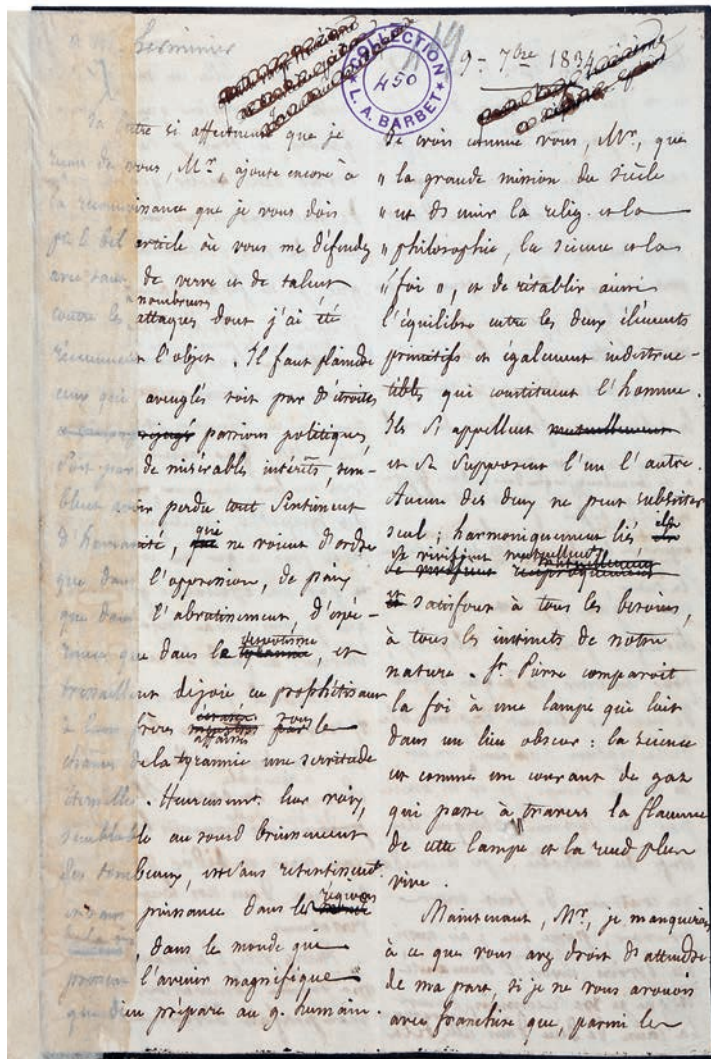 à M. Lherminier
COLLECTION
L. A. BARBET
450
9 - 7bre 1834
La lettre si affectueuse que je
reçois de vous, Mr, ajoute encore à
la reconnaissance que je vous dois
pr le bel article où vous me défendez
avec tant de verve et de talent
contre les nombreuses attaques dont j'ai été
récemment l'objet. Il faut plaindre
ceux qui aveuglés soit par d'étroites
passions politiques,
soit par de misérables intérêts, sem-
blent avoir perdu tout sentiment
d'humanité, qui ne voient d'ordre
que dans l'oppression, de paix
que dans l'abrutissement, d'espé-
rance que dans le despotisme tyrannie, et
tressaillent de joie en prophétisant
à leurs frères affaissés sous le
chaînes de la tyrannie une servitude
éternelle. Heureusemt. leur voix,
semblable au sourd bruissement
des tombeaux, est sans retentissemt.
et sans puissance dans les régions
, dans le monde que
pressent l'avenir magnifique
que Dieu prépare au g. humain.
Je crois comme vous, Mr, que
" la grande mission du siècle
" est de unir la relig. et la
" philosophie, la science et la
" foi ", et de rétablir ainsi
l'équilibre entre les deux éléments
primitifs et également indestruc-
tibles qui constituent l'homme.
Ils s'appellent mutuellement
et se supposent l'un l'autre.
Aucun des deux ne peut subsister
seul ; harmoniquement liés ils
se vivifient mutuellement
se vivifient réciproquement
et satisfont à tous les besoins,
à tous les instincts de notre
nature. St. Pierre comparoit
la foi à une lampe qui luit
dans un lieu obscur : la science
est comme un courant de gaz
qui passe à travers la flamme
de cette lampe et la rend plus
vive.
Maintenant, Mr, je manquerois
à ce que vous avez droit d'attendre
de ma part, si je ne vous avouois
avec franchise que, parmi les